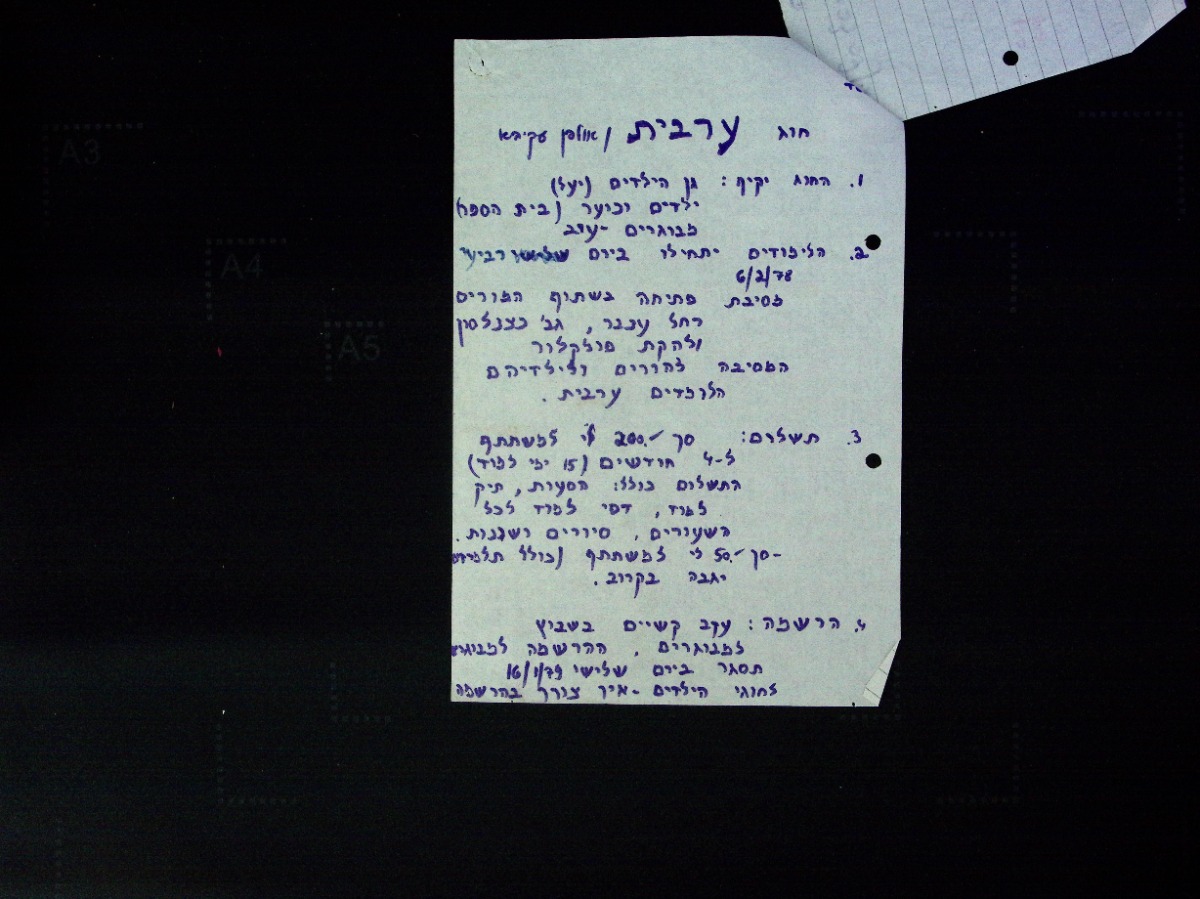 חוג ערבית / אולפן עקיבא
1. החוג יקיף: גן הילדים (יעל)
ילדים ונוער (בית הספר)
מבוגרים -ערב
2. הלימודים יתחילו ביום רביעי
6/2/78
מסיבת פתיחה בשתוף המורים
רחל ענבר, גב' כצנלסון
ולהקת פולקלור
המסיבה להורים ולילדיהם
הלומדים ערבית.
3. תשלום: סך 200.- לי למשתתף
ל-4 חודשים (15 ימי למוד)
התשלום כולל: הסעות, תיק
למוד, דפי למוד לכל
השעורים, סיורים ושכנות.
-סך 50.- לי למשתתף (כולל
יגבה בקרוב.
4. הרשמה: עקב קשיים בשבוץ
למבוגרים, ההרשמה
תסגר ביום שלישי 16/1/79
לחוגי הילדים -אין צורך בהרשמה
A3
A4
A5